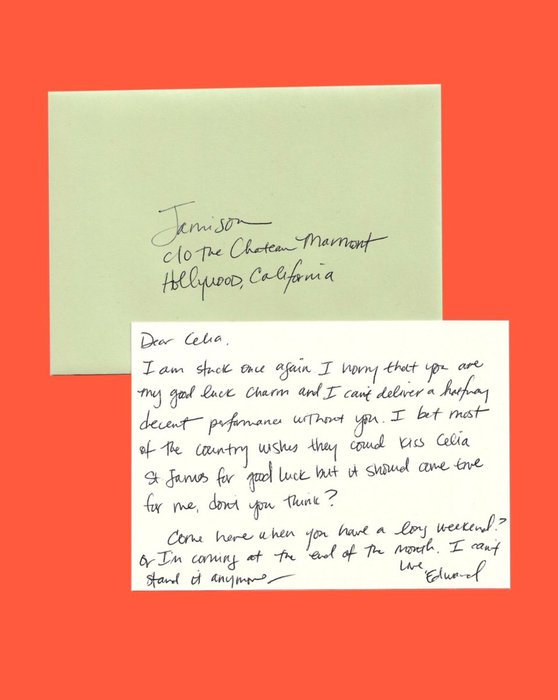 Jamison
c/o The Chateau Marmont
Hollywood, California
Dear Celia,
I am stuck once again I worry that you are
my good luck charm and I can't deliver a halfway
decent performance without you. I bet most
of the country wishes they could kiss Celia
St James for good luck but it should come true
for me, don't you think?
Come here when you have a long weekend?
Or I'm coming at the end of the month. I can't
stand it anymore
Love
Edward